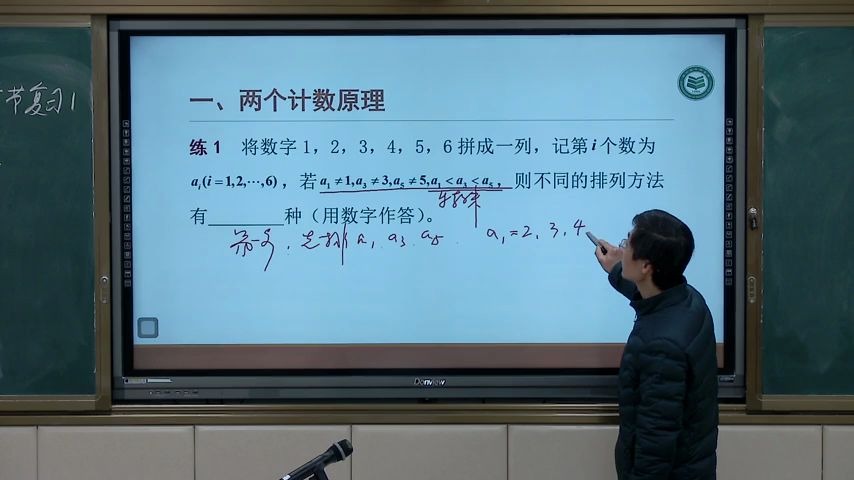 节复习1
一、两个计数原理
练1 将数字 1，2，3，4，5，6 拼成一列，记第 i 个数为
aᵢ(i=1,2,⋯,6)，若 a₁≠1,a₃≠3,a₅≠5,a₁<a₃<a₅，则不同的排列方法
有______种（用数字作答）。
第一步，先排 a₁ a₃ a₅ a₁=2, 3, 4
Donview